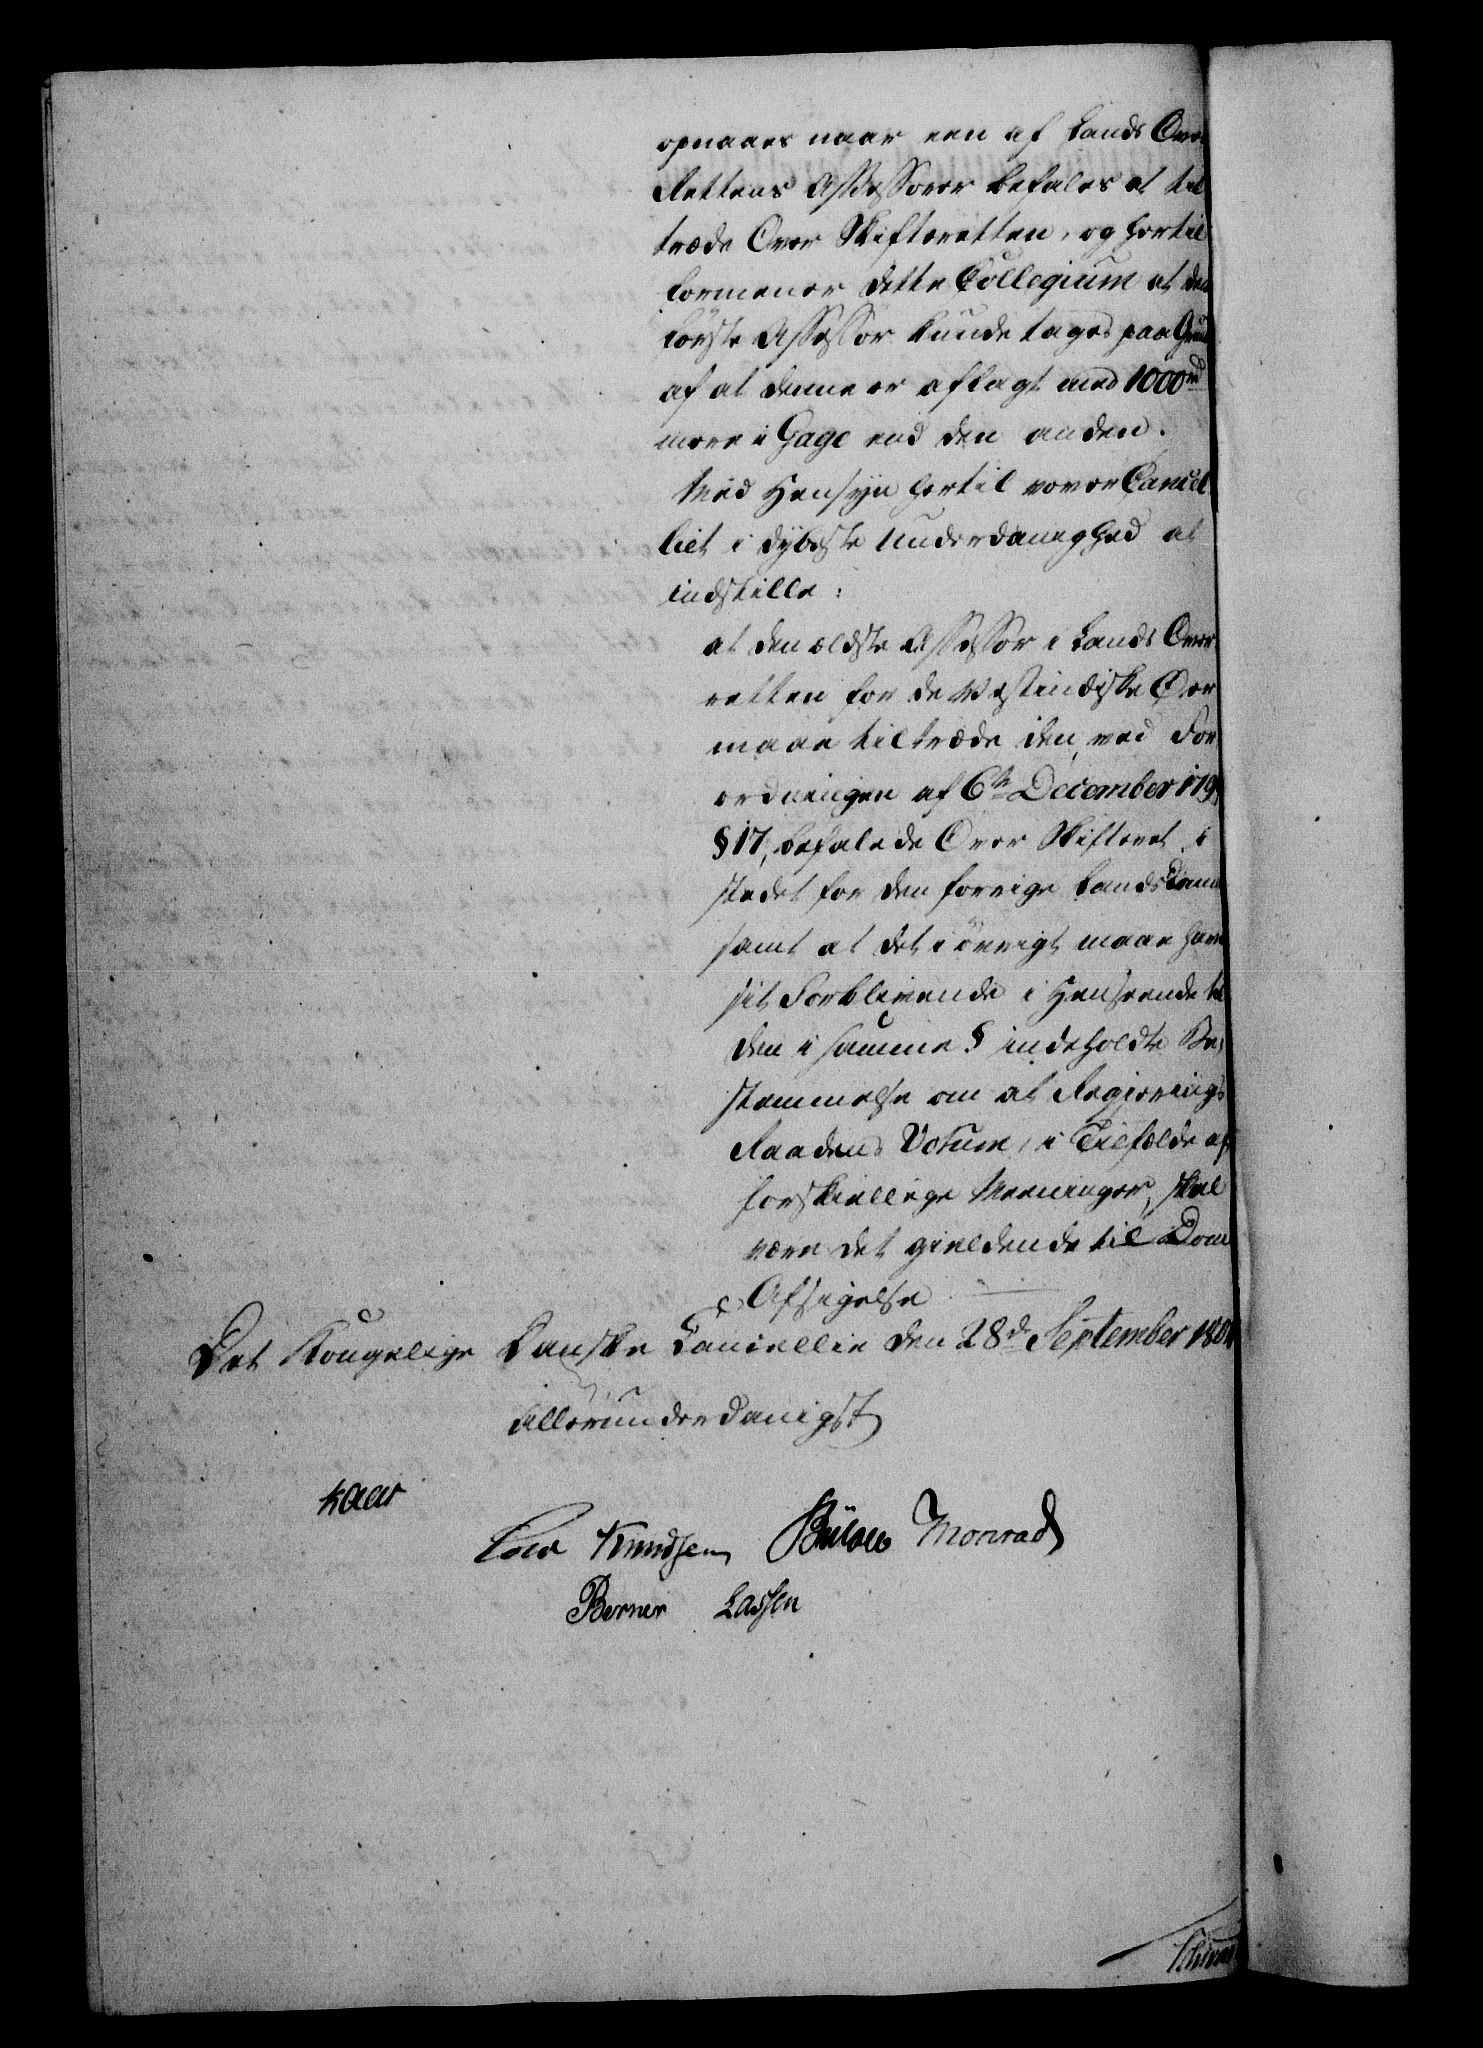 opnaaes naar een af Lands Over
Rettens Assessorer befales at til
træde Over Skifteretten, og hertil
formener dette Collegium at den
første Assessor kunde tages paa Grund
af at denne er aflagt med 1000 rd
mere i Gage end den anden.
Med Hensyn hertil vover Cancel
liet i dybeste Underdanighed at
indstille:
at den ældste Assessor i Lands Over
retten for de Vestindiske Øer
maae tiltræde den, ved For
ordningen af 6te December 179
§ 17, befalede Over Skifteret i
stedet for den forrige Landsdom
samt at det i øvrigt maae have
sit Forblivende i Henseende til
den i samme § indeholdte Be,
stemmelse om at Regierings
Raadens Votum, i Tilfælde af
forskiellige Meeninger, skal
være det gieldende til Dom
Afsigelse
Det Kongelige Danske Cancellie den 28de September 180
Allerunderdanigst
Kaas
Cold Knudsen Bülow Monrad
Berner Lassen